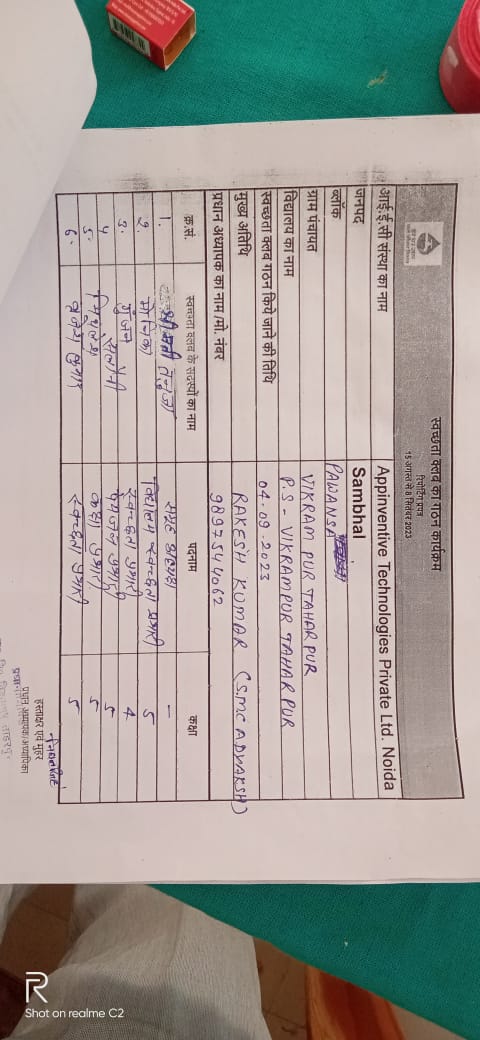 स्वच्छता क्लब का गठन कार्यक्रम
रिपोर्टिंग प्रपत्र
15 अगस्त से 8 सितंबर 2023
आई.ई.सी संस्था का नाम Appinventive Technologies Private Ltd. Noida
जनपद Sambhal
ब्लॉक PAWANSA
ग्राम पंचायत VIKRAM PUR TAHAR PUR
विद्यालय का नाम P.S - VIKRAMPUR TAHAR PUR
स्वच्छता क्लब गठन किये जाने की तिथि 04.09.2023
मुख्य अतिथि RAKESH KUMAR (S.M.C ADYAKSH)
प्रधान अध्यापक का नाम/मो. नंबर 9897544062
क्र.सं. स्वच्छता क्लब के सदस्यों का नाम पदनाम कक्षा
1. श्रीमती तनुजा –
2. मोनिका विद्यालय स्वच्छता प्रभारी 5
3. गुंजन स्वच्छता प्रभारी 4
4 प्रभारी 5
5. मिथलेश कक्षा प्रभारी 5
6. कुमार स्वच्छता प्रभारी 5
हस्ताक्षर एवं मुहर
प्रधान अध्यापक/अध्यापिका
Shot on realme C2